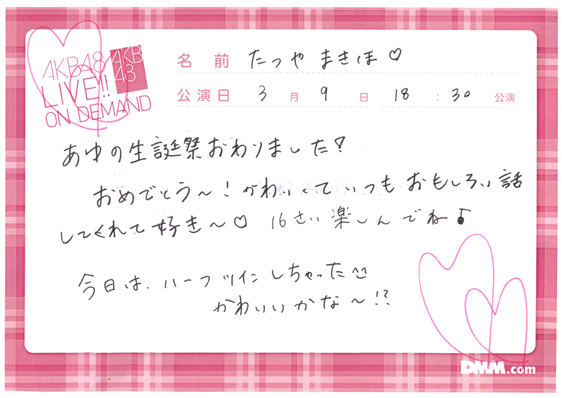 AKB48
LIVE!!
ON DEMAND
AKB
48
名前 たつや まきほ♡
公演日 3月9日 18:30 公演
あゆの生誕祭おわりました!
おめでとう〜!かわいくていつもおもしろい話
してくれて好き〜♡ 16さい楽しんでね♪
今日は、ハーフツインしちゃった^^
かわいいかな〜!?
DMM.com